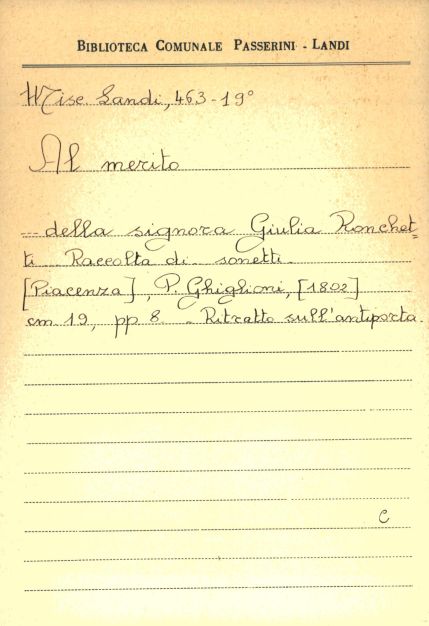 BIBLIOTECA COMUNALE PASSERINI - LANDI
Misc. Landi, 463-19°
Al merito
... della signora Giulia Ronchet=
ti. Raccolta di sonetti.
[Piacenza], P. Ghiglioni, [1802]
cm 19, pp 8. - Ritratto sull'antiporta.
C